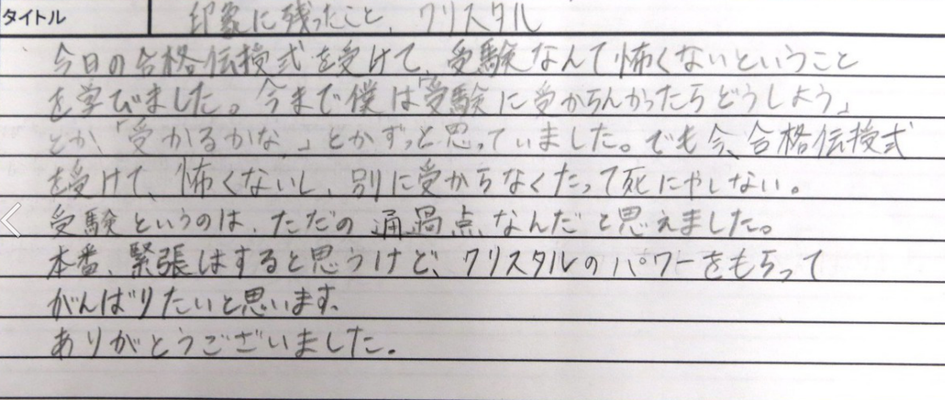 タイトル 印象に残ったこと、クリスタル
今日の合格伝授式を受けて、受験なんて怖くないということ
を学びました。今まで僕は「受験に受からんかったらどうしよう」
とか「受かるかな」とかずっと思っていました。でも今、合格伝授式
を受けて、怖くないし、別に受からなくたって死にやしない。
受験というのは、ただの通過点なんだと思えました。
本番、緊張はすると思うけど、クリスタルのパワーをもらって
がんばりたいと思います。
ありがとうございました。